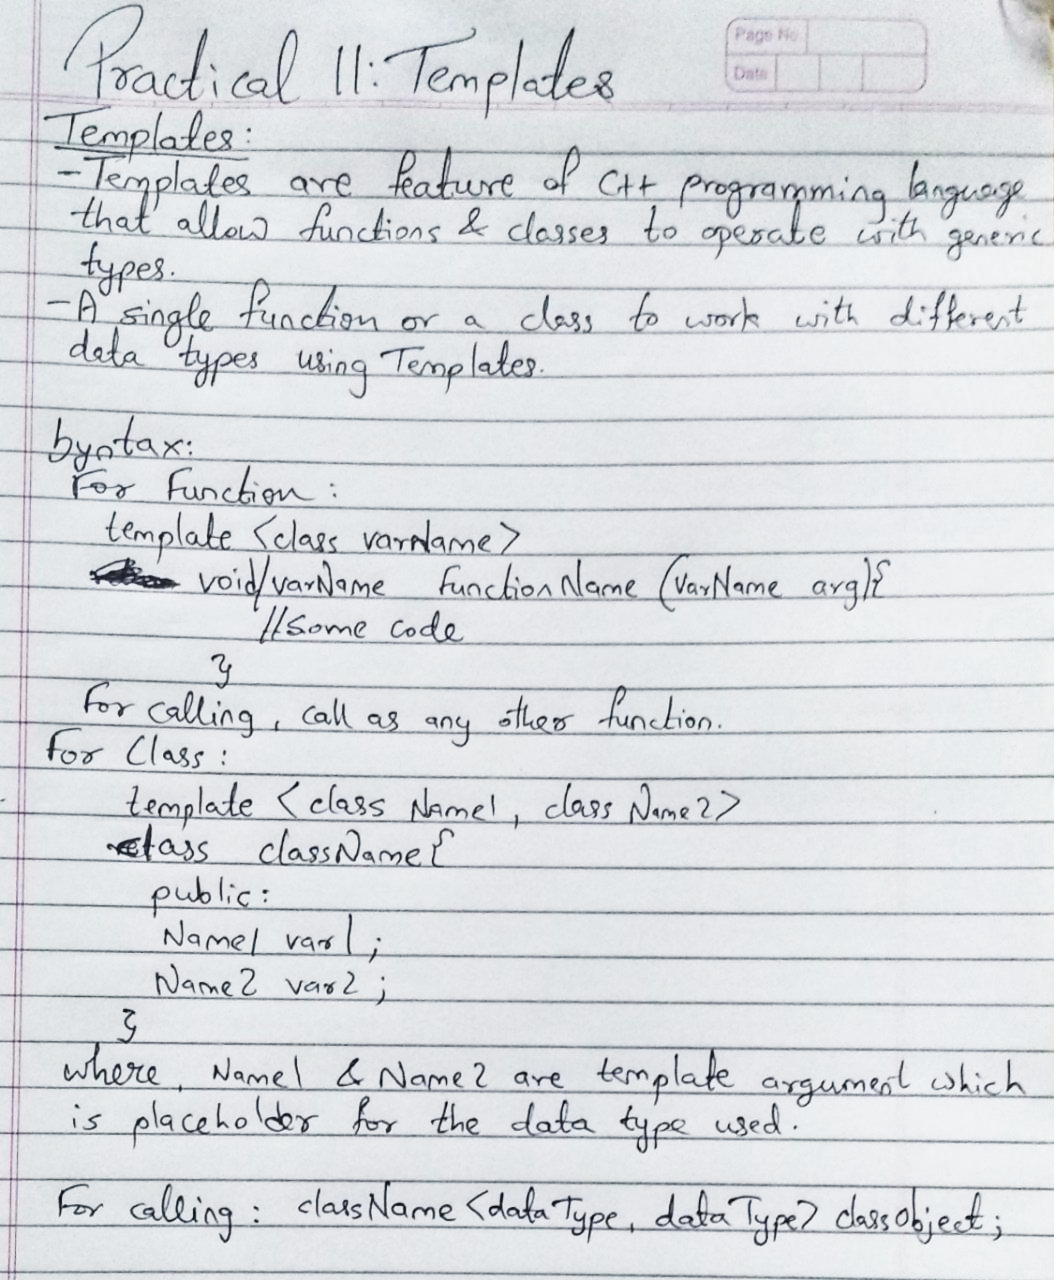 Practical 11: Templates
Page No
Date
Templates:
- Templates are feature of C++ programming language
that allow functions & classes to operate with generic
types.
- A single function or a class to work with different
data types using Templates.
Syntax:
For Function :
template <class varName>
void/varName FunctionName (VarName arg){
//some code
}
For calling, call as any other function.
For Class :
template <class Name1, class Name2>
class className{
public:
Name1 var1;
Name2 var2;
}
where, Name1 & Name2 are template argument which
is placeholder for the data type used.
For calling : className <dataType, dataType> classobject;